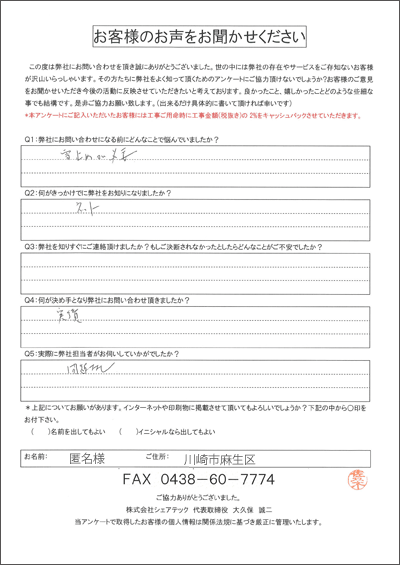 お客様のお声をお聞かせください
この度は弊社にお問い合わせを頂き誠にありがとうございました。世の中には弊社の存在やサービスをご存知ないお客様
が沢山いらっしゃいます。その方たちに弊社をよく知って頂くためのアンケートにご協力頂けないでしょうか?お客様のご意見
をお聞かせいただき今後の活動に反映させていただきたいと考えております。良かったこと、嬉しかったことどのような些細な
事でも結構です。是非ご協力お願い致します。(出来るだけ具体的に書いて頂ければ幸いです)
*本アンケートにご記入いただいたお客様には工事ご用命時に工事金額(税抜き)の2%をキャッシュバックさせていただきます。
Q1:弊社にお問い合わせになる前にどんなことで悩んでいましたか?
雪止めの
Q2:何がきっかけでに弊社をお知りになりましたか?
ネット
Q3:弊社を知りすぐにご連絡頂けましたか?もしご決断されなかったとしたらどんなことがご不安でしたか?
Q4:何が決め手となり弊社にお問い合わせ頂きましたか?
実績
Q5:実際に弊社担当者がお伺いしていかがでしたか?
*上記についてお願いがあります。インターネットや印刷物に掲載させて頂いてもよろしいでしょうか?下記の中から○印を
お付下さい。
( )名前を出してもよい ( )イニシャルなら出してもよい
お名前: 匿名様 ご住所: 川崎市麻生区
FAX 0438-60-7774
ご協力ありがとうございました。
株式会社シェアテック 代表取締役 大久保 誠二
当アンケートで取得したお客様の個人情報は関係法規に基づき厳正に管理いたします。